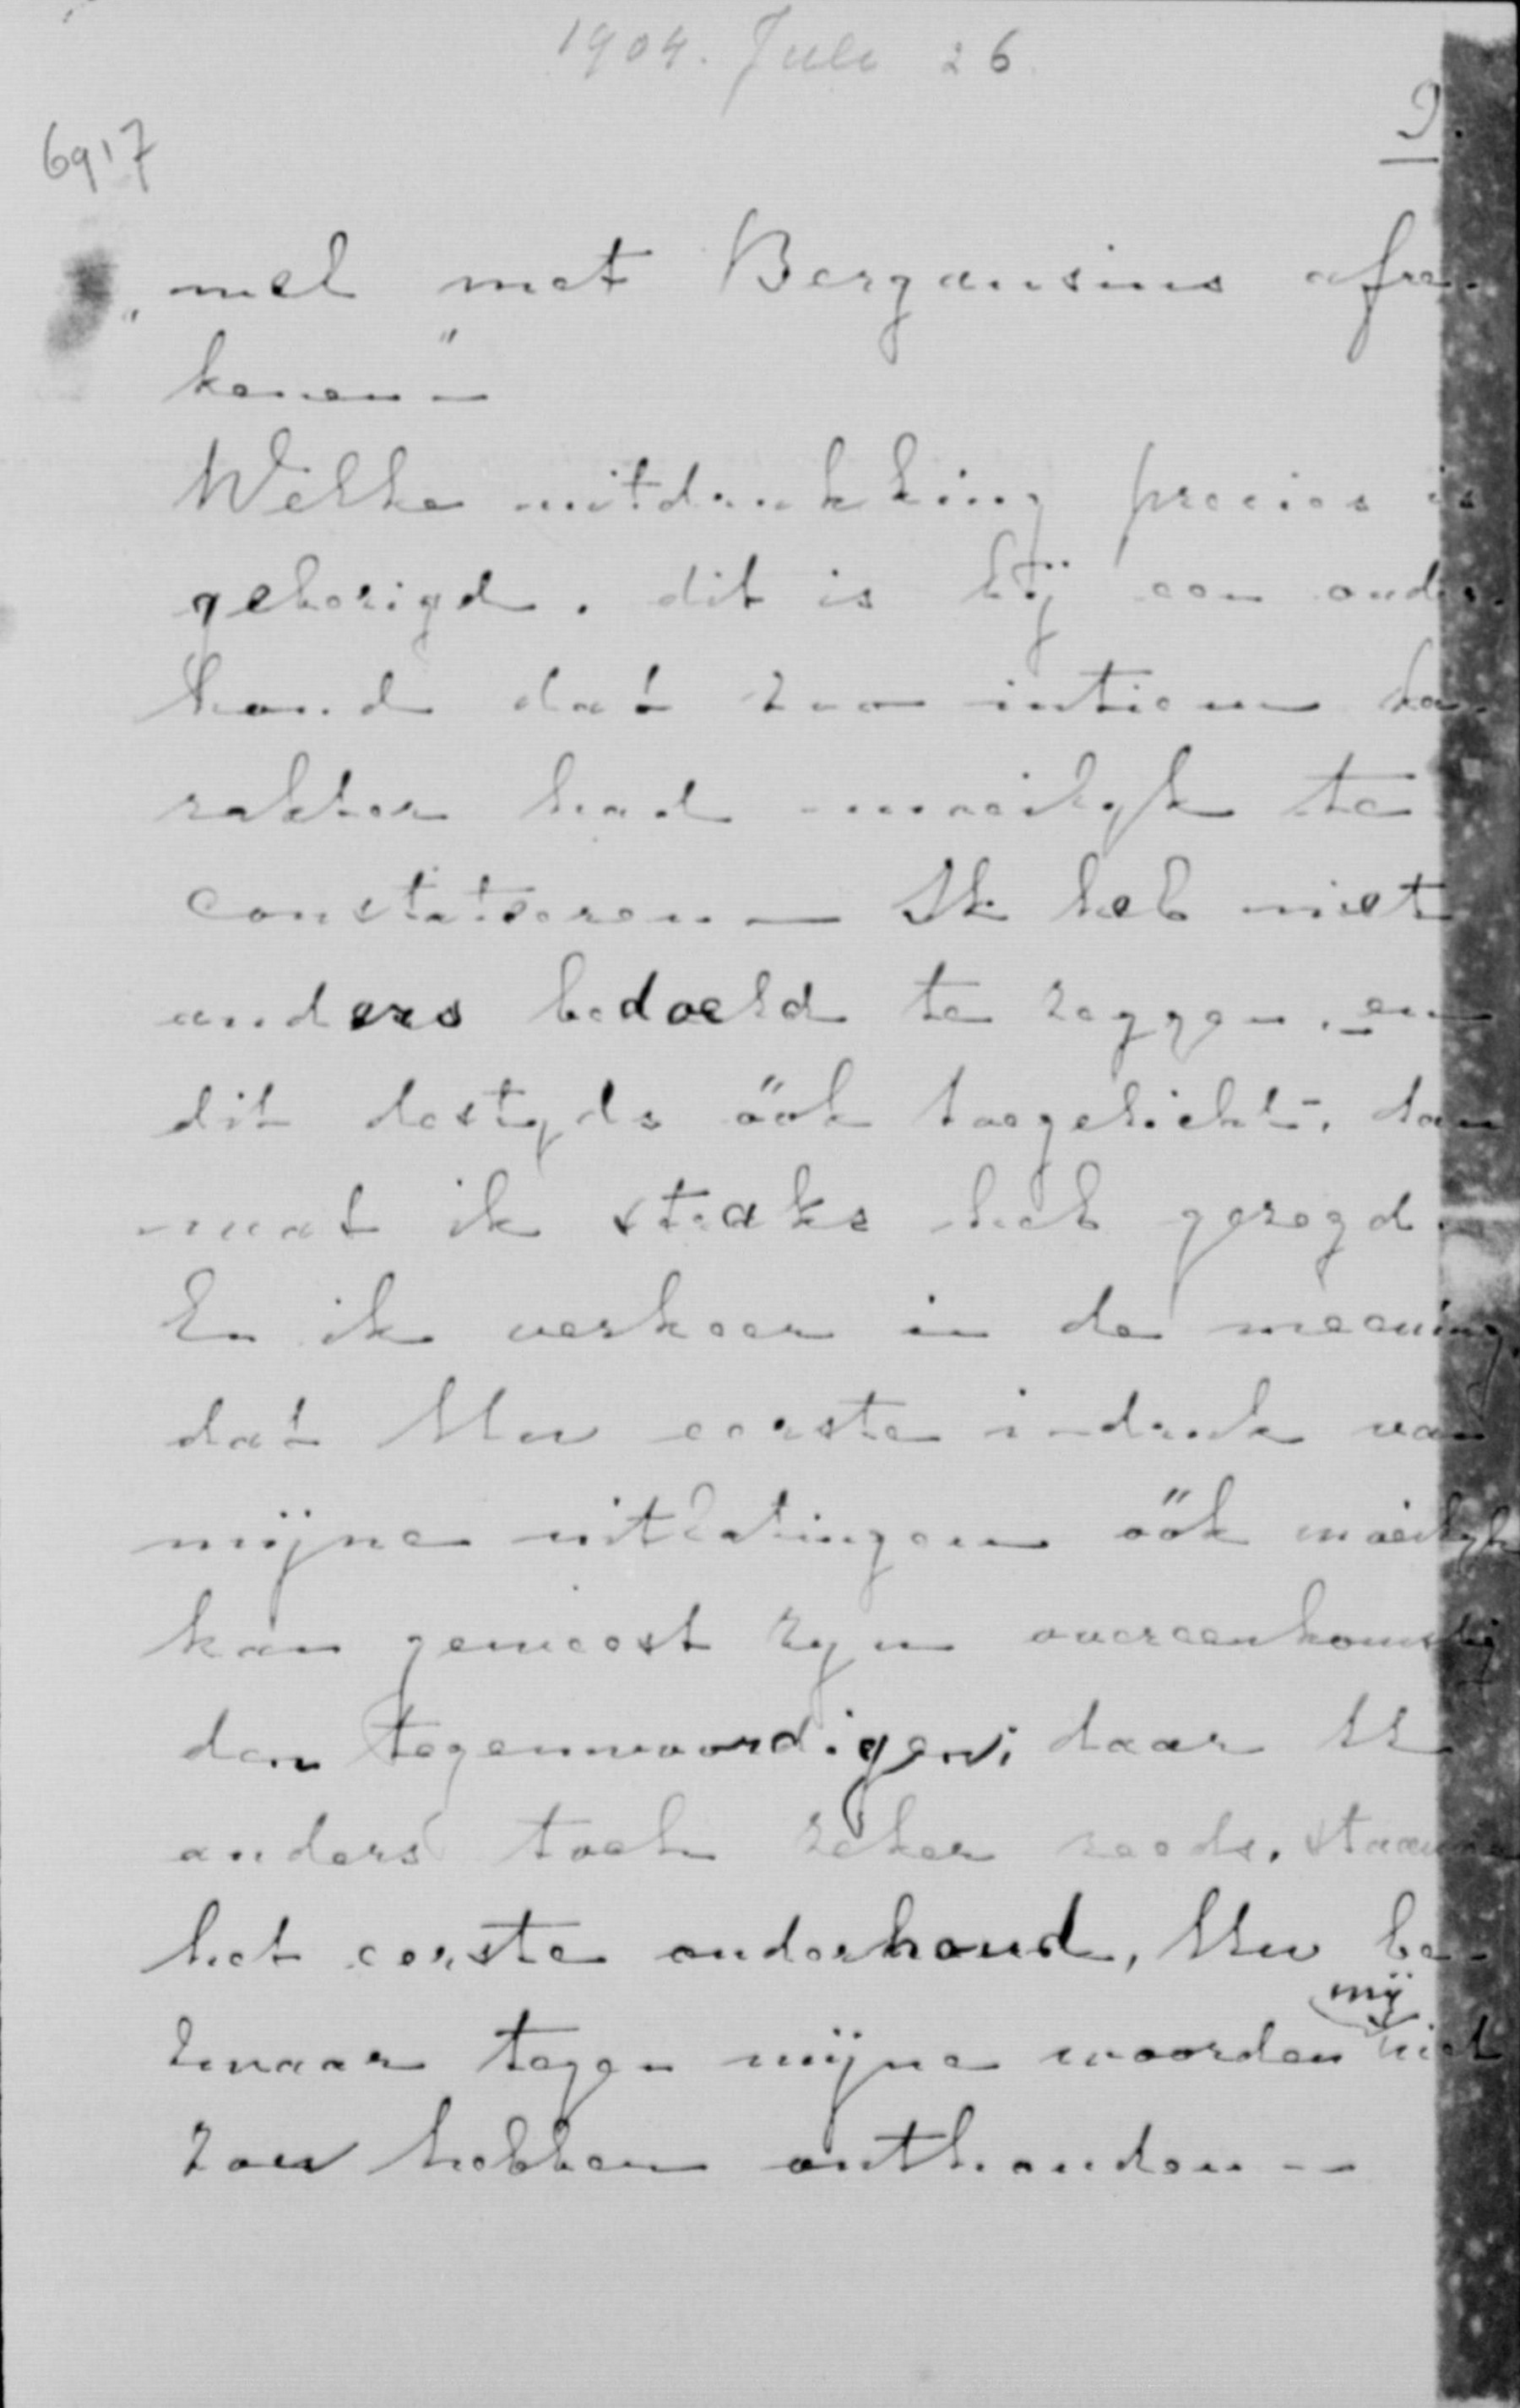 1904. Juli 26.
9.
6917
„wel met Bergansius afre-
kenen" —
Welke uitdrukking precies is
gebezigd, dit is bij een onder-
houd dat zoo intiem ka-
rakter had moeilijk te
constateeren — Ik heb niet
anders bedoeld te zeggen, en
dit destijds óók toegelicht, dan
wat ik straks heb gezegd.
En ik verkeer in de meening,
dat Uw eerste indruk van
mijne uitlatingen óók moeilijk
kan geweest zijn overeenkomstig
den tegenwoordigen; daar U
anders toch zeker reeds, staande
het eerste onderhoud, Uw be-
mij
zwaar tegen mijne woorden niet
zou hebben onthouden —